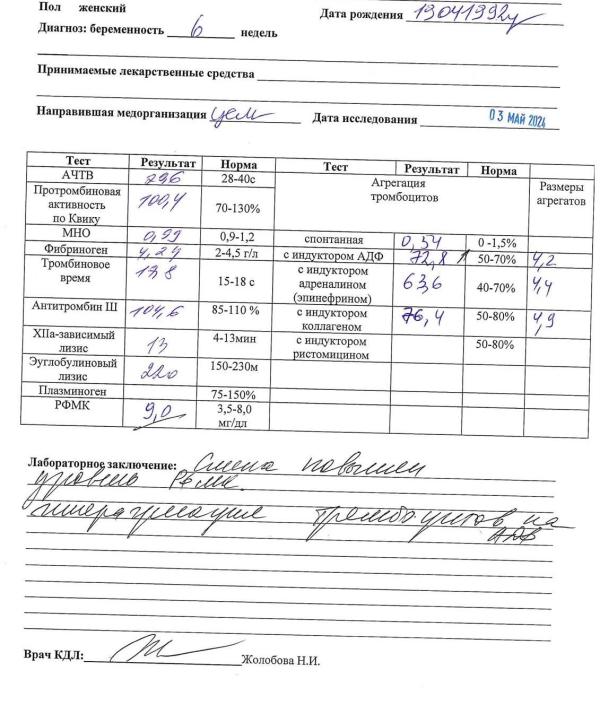 Пол женский Дата рождения 13041992г
Диагноз: беременность 6 недель
Принимаемые лекарственные средства
Направившая медорганизация цем Дата исследования 03 МАЙ 2024
Тест Результат Норма Тест Результат Норма
АЧТВ 29,6 28-40с Агрегация тромбоцитов Размеры агрегатов
Протромбиновая активность по Квику 100,4 70-130%
МНО 0,99 0,9-1,2 спонтанная 0,34 0 -1,5%
Фибриноген 4,24 2-4,5 г/л с индуктором АДФ 72,8 50-70% 4,2
Тромбиновое время 13,8 15-18 с с индуктором адреналином (эпинефрином) 63,6 40-70% 4,4
Антитромбин III 104,6 85-110 % с индуктором коллагеном 76,4 50-80% 4,9
XIIа-зависимый лизис 13 4-13мин с индуктором ристомицином 50-80%
Эуглобулиновый лизис 220 150-230м
Плазминоген 75-150%
РФМК 9,0 3,5-8,0 мг/дл
Лабораторное заключение: повышен
уровень РФМК.
гиперагрегация тромбоцитов на
АДФ
Врач КДЛ: Жолобова Н.И.